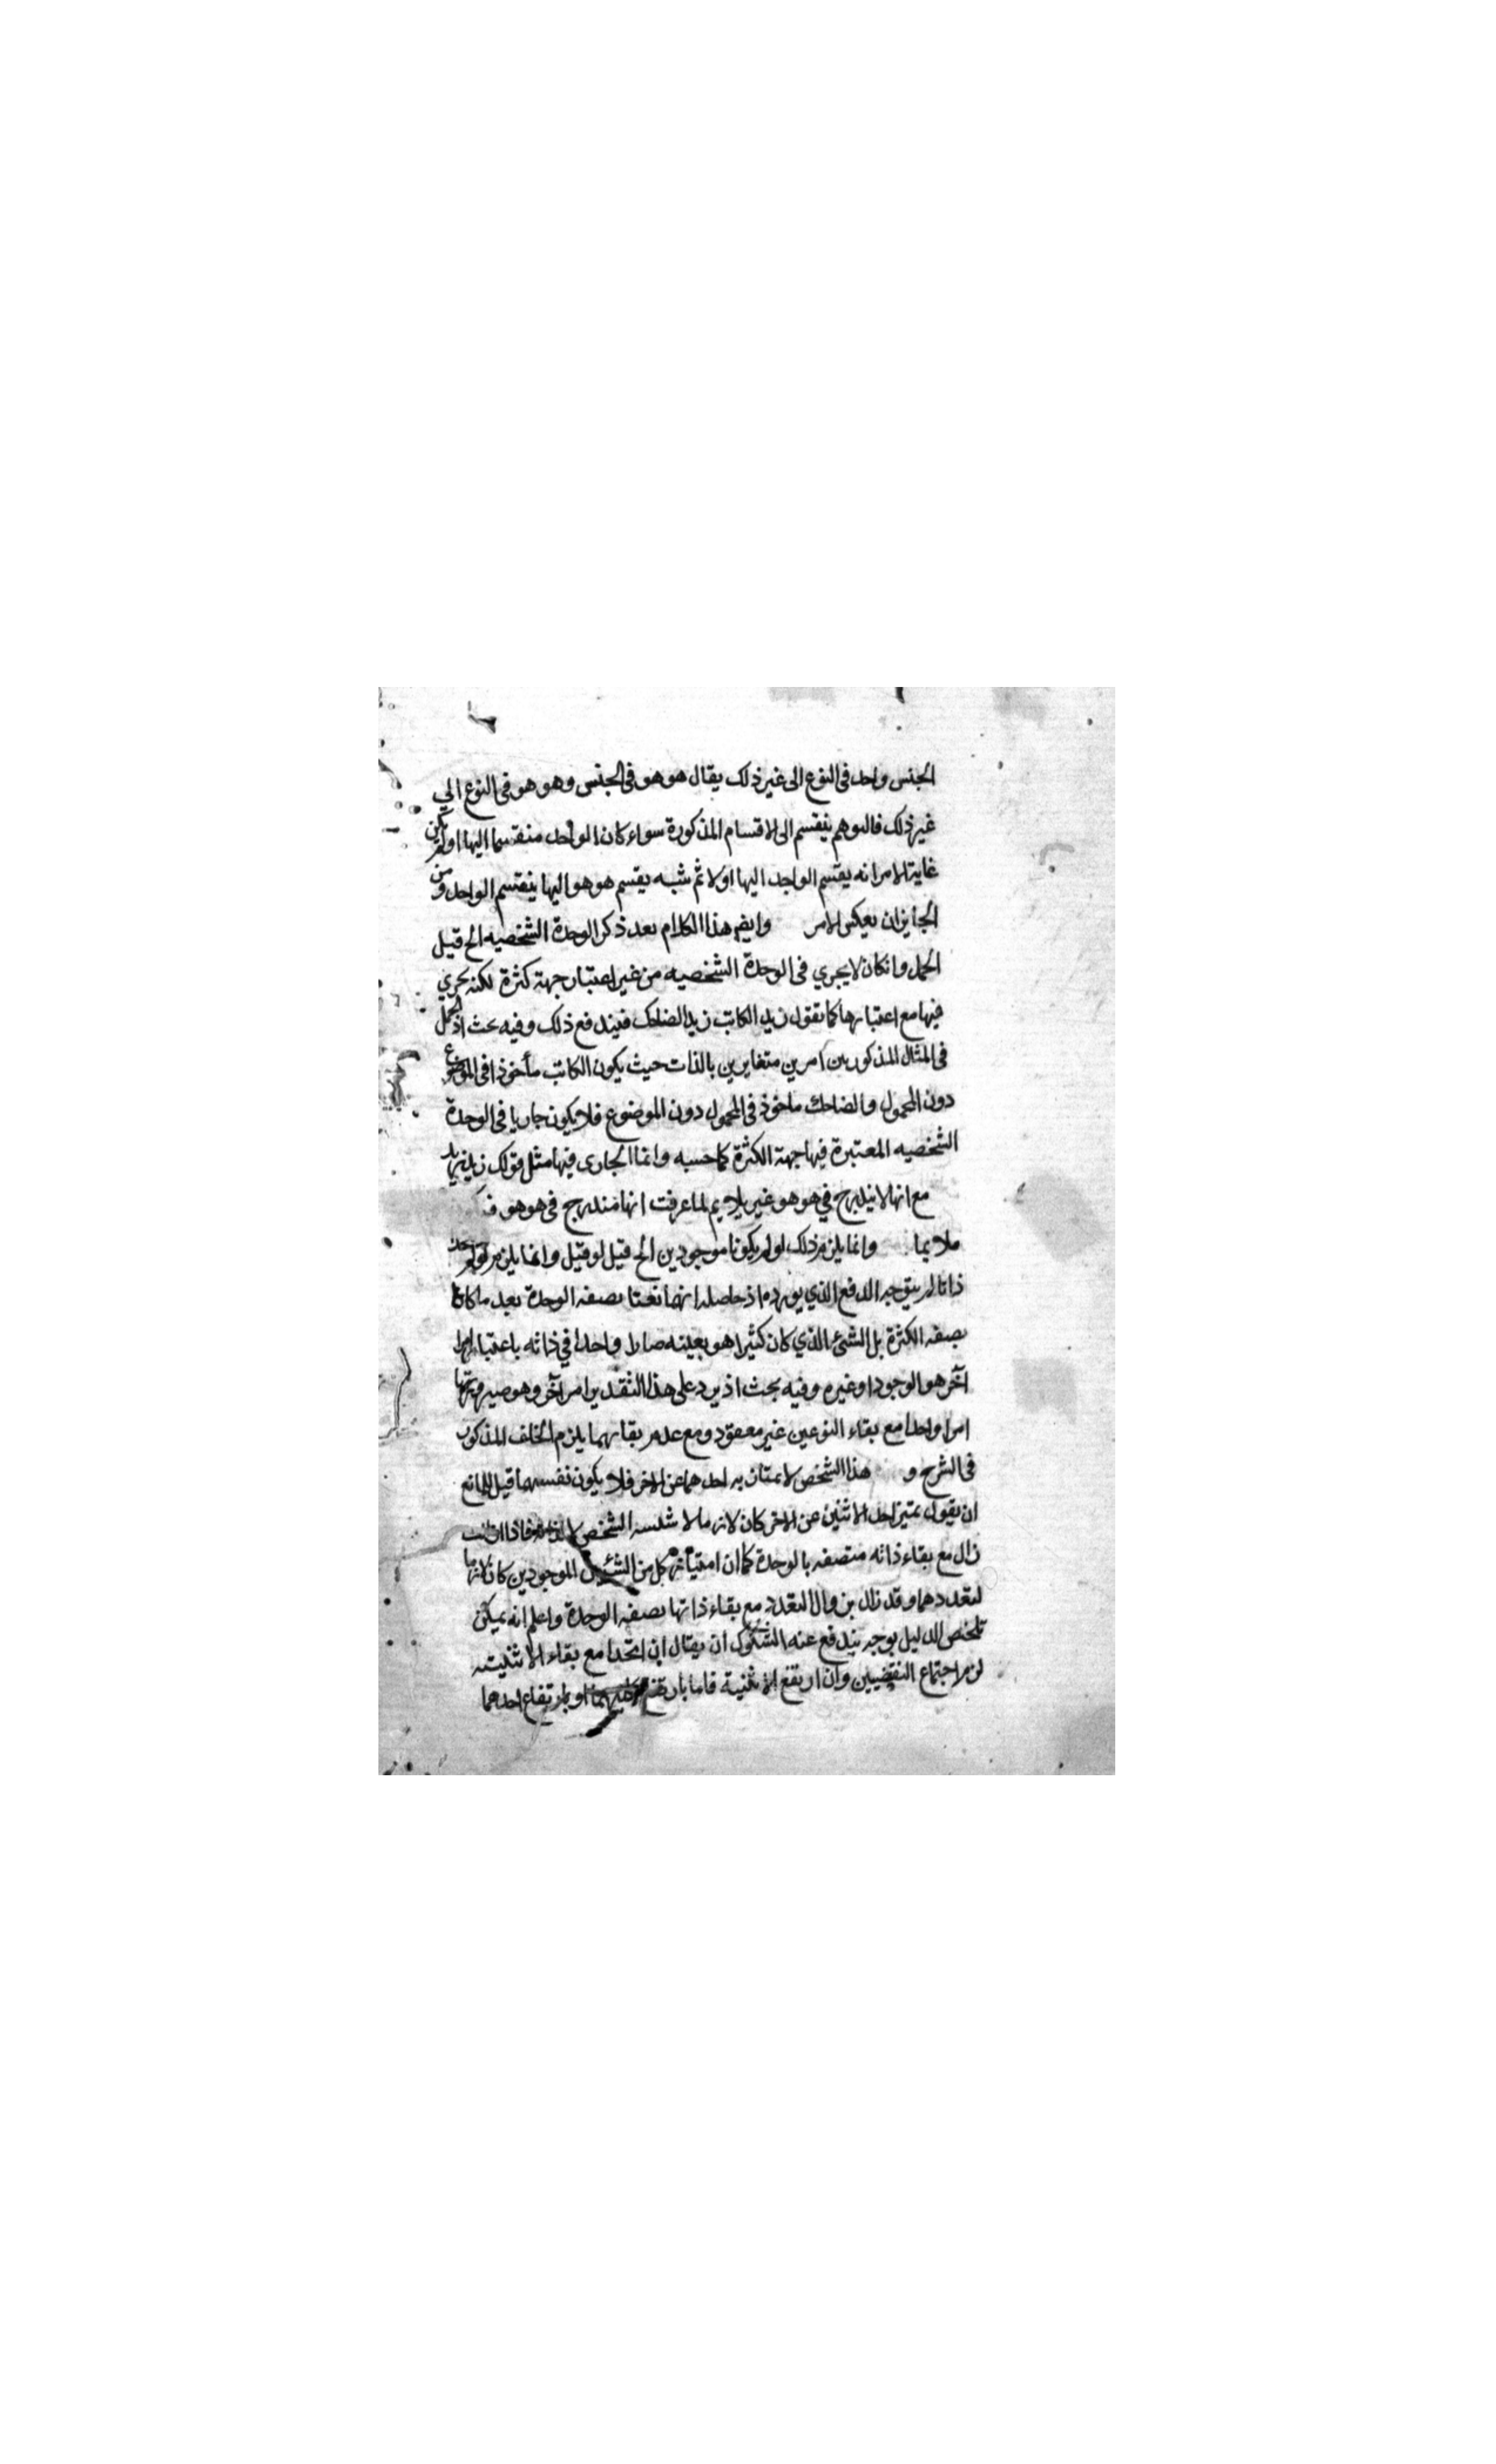 الجنس واحد في النوع الى غير ذلك يقال هو هو في الجنس وهو هو في النوع الي
غير ذلك فالهوهو ينقسم الى الاقسام المذكورة سواء كان الواحد منقسما اليها اولم يكن
غاية الامر انه يقسم الواجد اليها اولا ثم شبه يقسم هو هو اليها ينقسم الواحد ومن
الجايز ان يعكس الامر وايضا هذا الكلام بعد ذكر الوحدة الشخصيه الخ قيل
الحمل وانكان لا يجري في الوحدة الشخصيه من غير اعتبار جهة كثرة لكنه يجري
فيها مع اعتبارها كما تقول زيد الكاتب زيد الضاحك فيندفع ذلك وفيه بحث اذ الحمل
في المثال المذكور بين امرين متغايرين بالذات حيث يكون الكاتب مأخوذا في الموضوع
دون المحمول والضاحك ماخوذ في المحمول دون الموضوع فلا يكون جاريا في الوحدة
الشخصيه المعتبرة فيها جهة الكثرة كما حسبه وانما الجارى فيها مثل قولك زيد زيد
مع انها لا يندرج في هو هو غير ملايم لما عرفت انها مندرج في هو هو
ملايما وانما يلزم ذلك لو لم يكونا موجودين الخ قيل لو قيل وانما يلزم لو لم
ذاتا لم يتوجه الدفع الذي يورده اذ حاصله انهما نعتا بصفه الوحدة بعد ما كانا
بصفه الكثرة بل الشئ الذي كان كثيرا هو بعينه صار واحدا في ذاته باعتبار امر
آخر هو الوجود او غيره وفيه بحث اذ يرد على هذا التقدير امر آخر وهو صيرورتهما
امرا واحدا مع بقاء النوعين غير معقود ومع عدم بقائهما يلزم الخلف المذكور
في الشرح و هذا الشخص لامتاز به احدهما عن الاخر فلا يكون نفسهما قيل للمانع
ان يقول تميز احد الاثنين عن الاخر كان لازما لا الشخص
زال مع بقاء ذاته متصفه بالوحدة كما ان امتياز كل من الشيئين الموجودين كان لازما
لتعددهما وقد زال بزوال التعدد مع بقاء ذاتها بصفه الوحدة واعلم انه يمكن
تلخيص الدليل بوجه يندفع عنه الشكوك ان يقال ان اتحدا مع بقاء الاثنينيه
لزم اجتماع النقيضين وان ارتفع الاثنينية فاما بارتفاع كليهما او بارتفاع احدهما